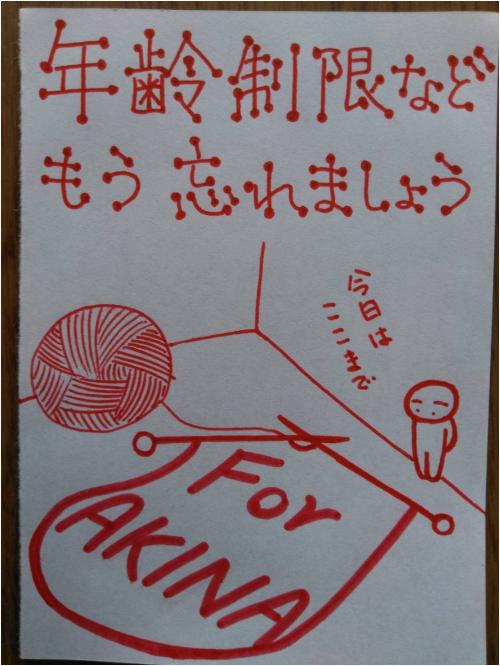 年齢制限など
もう忘れましょう
今日は
ここまで
For
AKINA